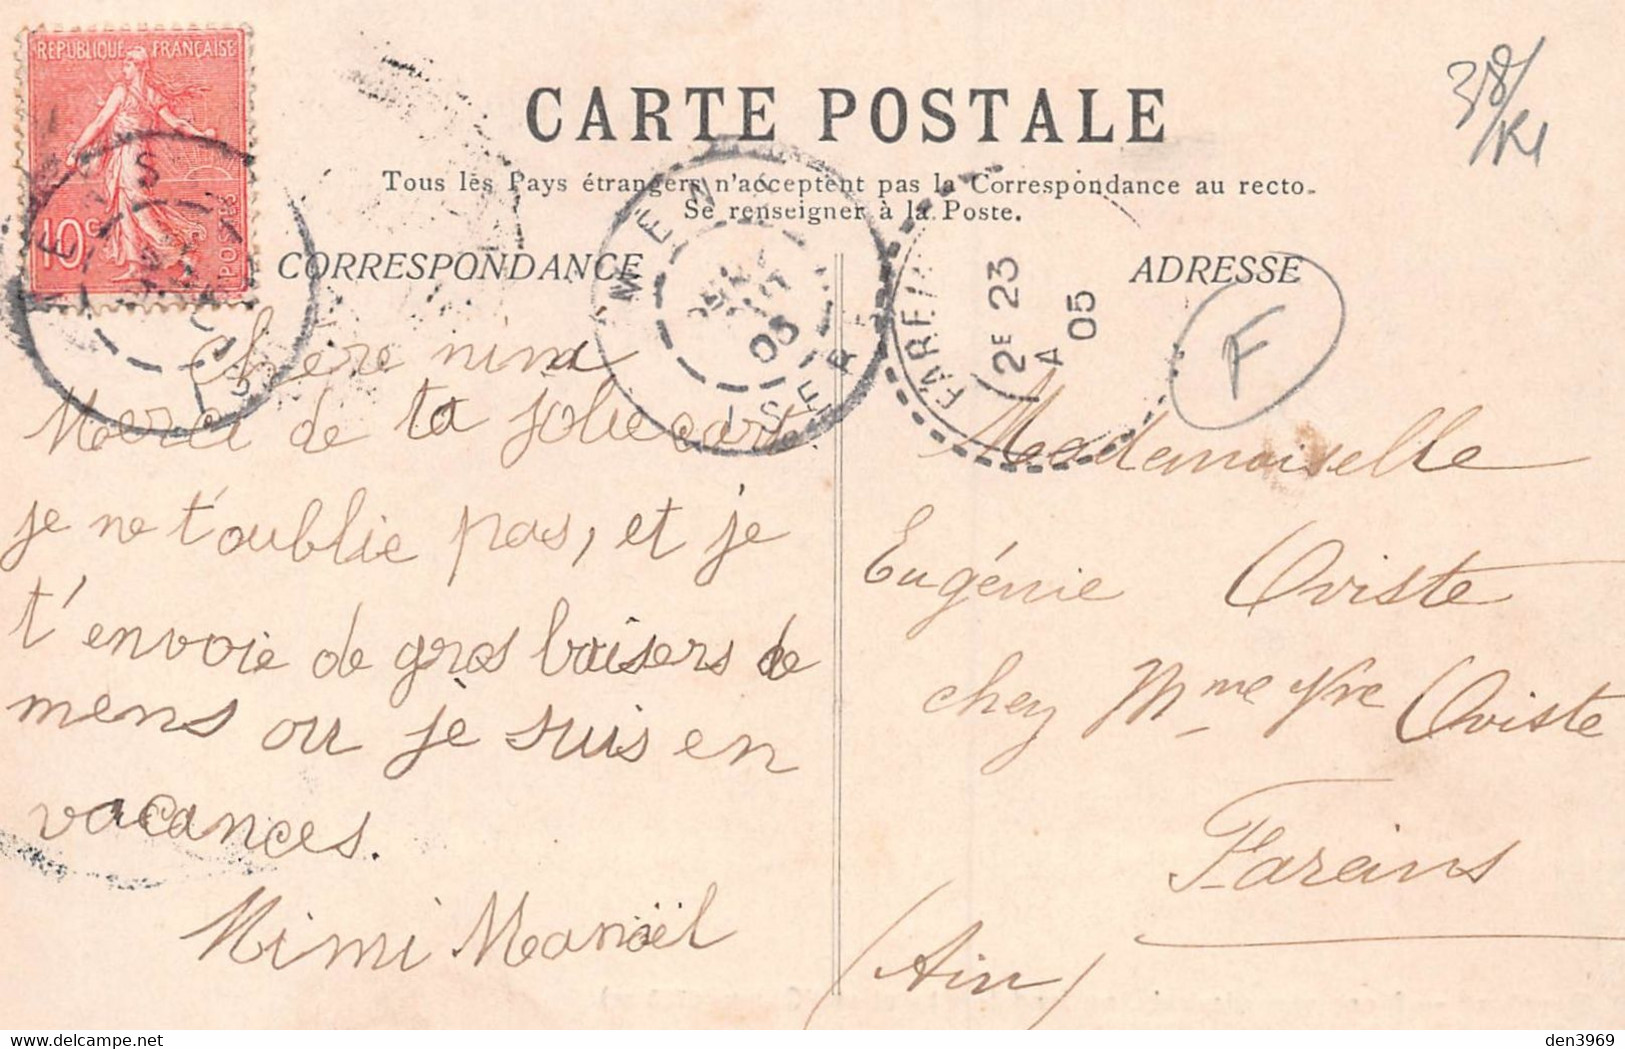 REPUBLIQUE FRANÇAISE
10c
POSTES
CARTE POSTALE
Tous les Pays étrangers n'acceptent pas la Correspondance au recto.
Se renseigner à la Poste.
38/
CORRESPONDANCE
Chere nini
Merci de ta jolie cart
je ne t'oublie pas, et je
t'envoie de gros baisers de
mens ou je suis en
vacances.
Mimi Manoël
MENS
05
ISERE
FAREINS
2E 23
A
05
ADRESSE
F
Mademoiselle
Eugénie Oviste
chez Mme Vve Oviste
Fareins
(Ain)
den3969